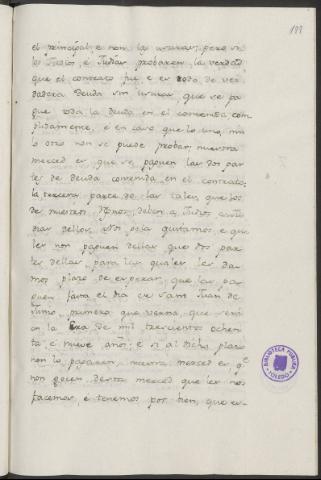 199
el principal, e non las usuras, pero si
los Judios, e Judias probaren la verdad
que el contrato fue e es todo de ver
dadera deuda sin usura, que se pa
gue toda la deuda en el contenida com
plidamente, e en caso que lo uno, nin
lo otro non se puede probar, nuestra
merced es, que se paguen las dos par
tes de deuda contenida en el contrato;
la tercera parte de las tales, que los
de nuestros Regnos deben a Judios
dellos, Nos gela quitamos, e que
les non paguen dellas que dos par
tes dellas para las quales les da
mos plazo de esperar, que las pa
guen fasta el dia de Sant Juan de
Junio, primero que verna, que será
en la Era de mil trescientos ochen
ta, e nueve años: e si al dicho plazo
non lo pagaren, nuestra merced es qe
non gocen desta merced que les nos
facemos, e tenemos por bien, que es-
BIBLIOTECA PUBLICA
TOLEDO